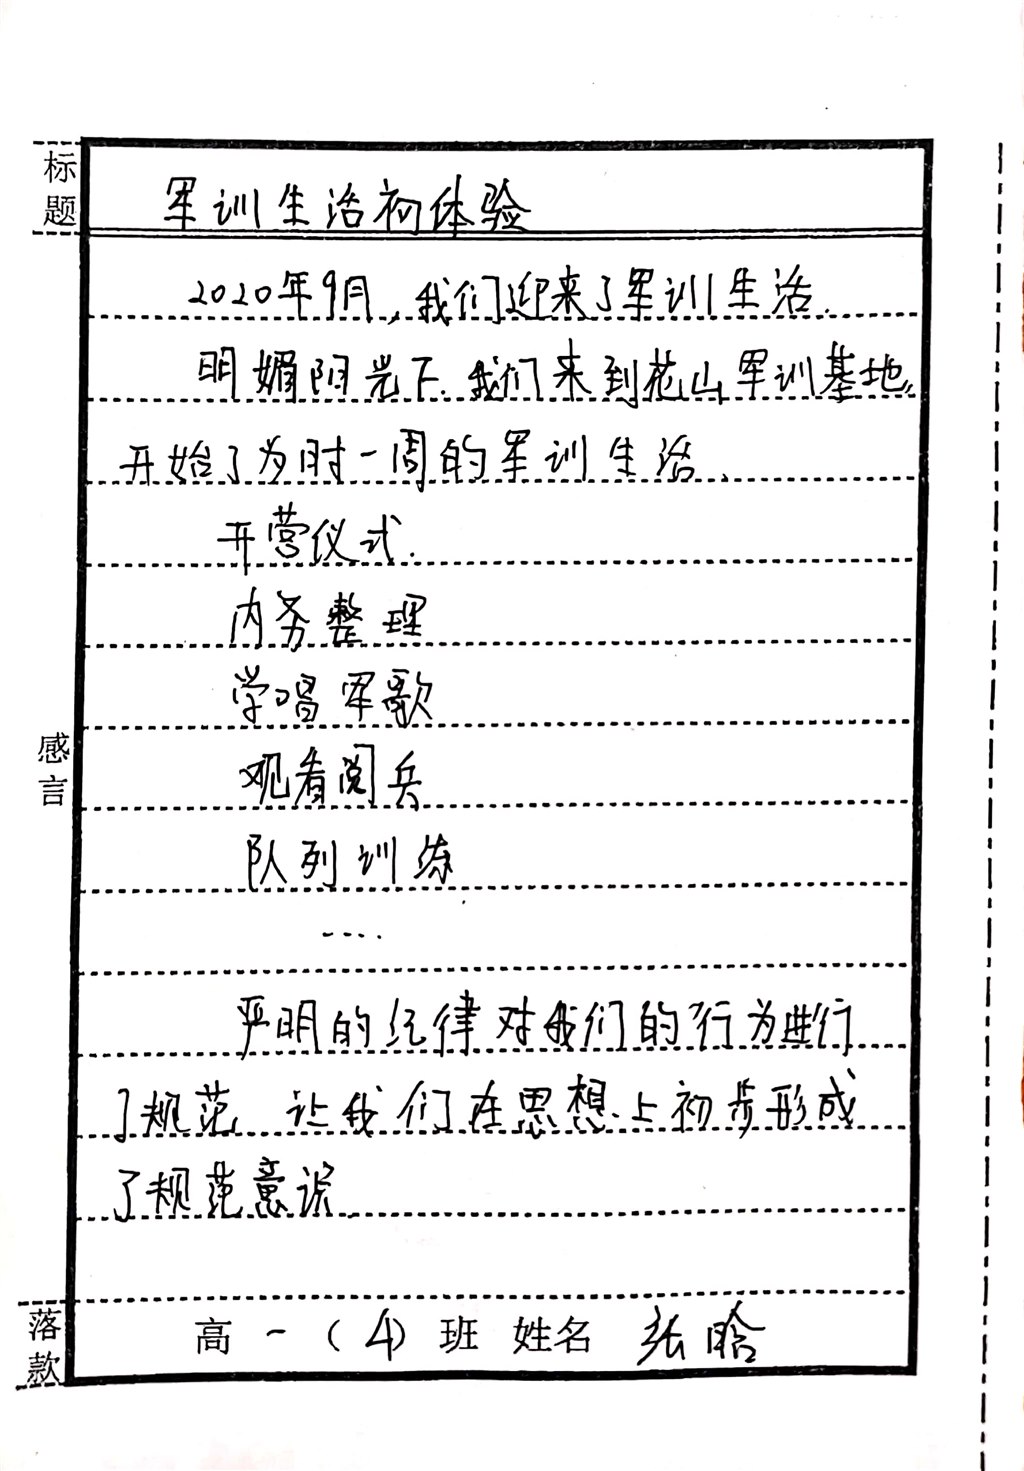 标题
军训生活初体验
2020年9月,我们迎来了军训生活.
明媚阳光下.我们来到花山军训基地,
开始了为时一周的军训生活.
开营仪式.
内务整理
学唱军歌
观看阅兵
队列训练
....
感言
严明的纪律对我们的行为进行
了规范 让我们在思想上初步形成
了规范意识.
落款
高一(4)班 姓名 张晗